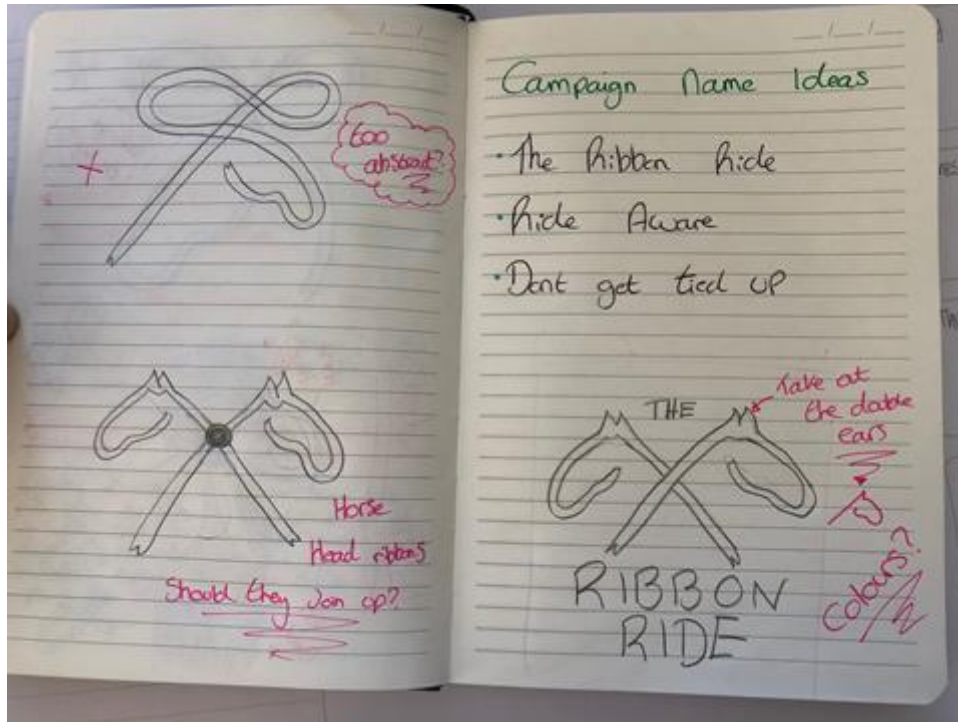 too
abstract?
Horse
Head ribbons
Should they Join up?
Campaign Name Ideas
The Ribbon Ride
Ride Aware
Dont get tied up
THE
RIBBON
RIDE
Take at
the double
ears
Colours?